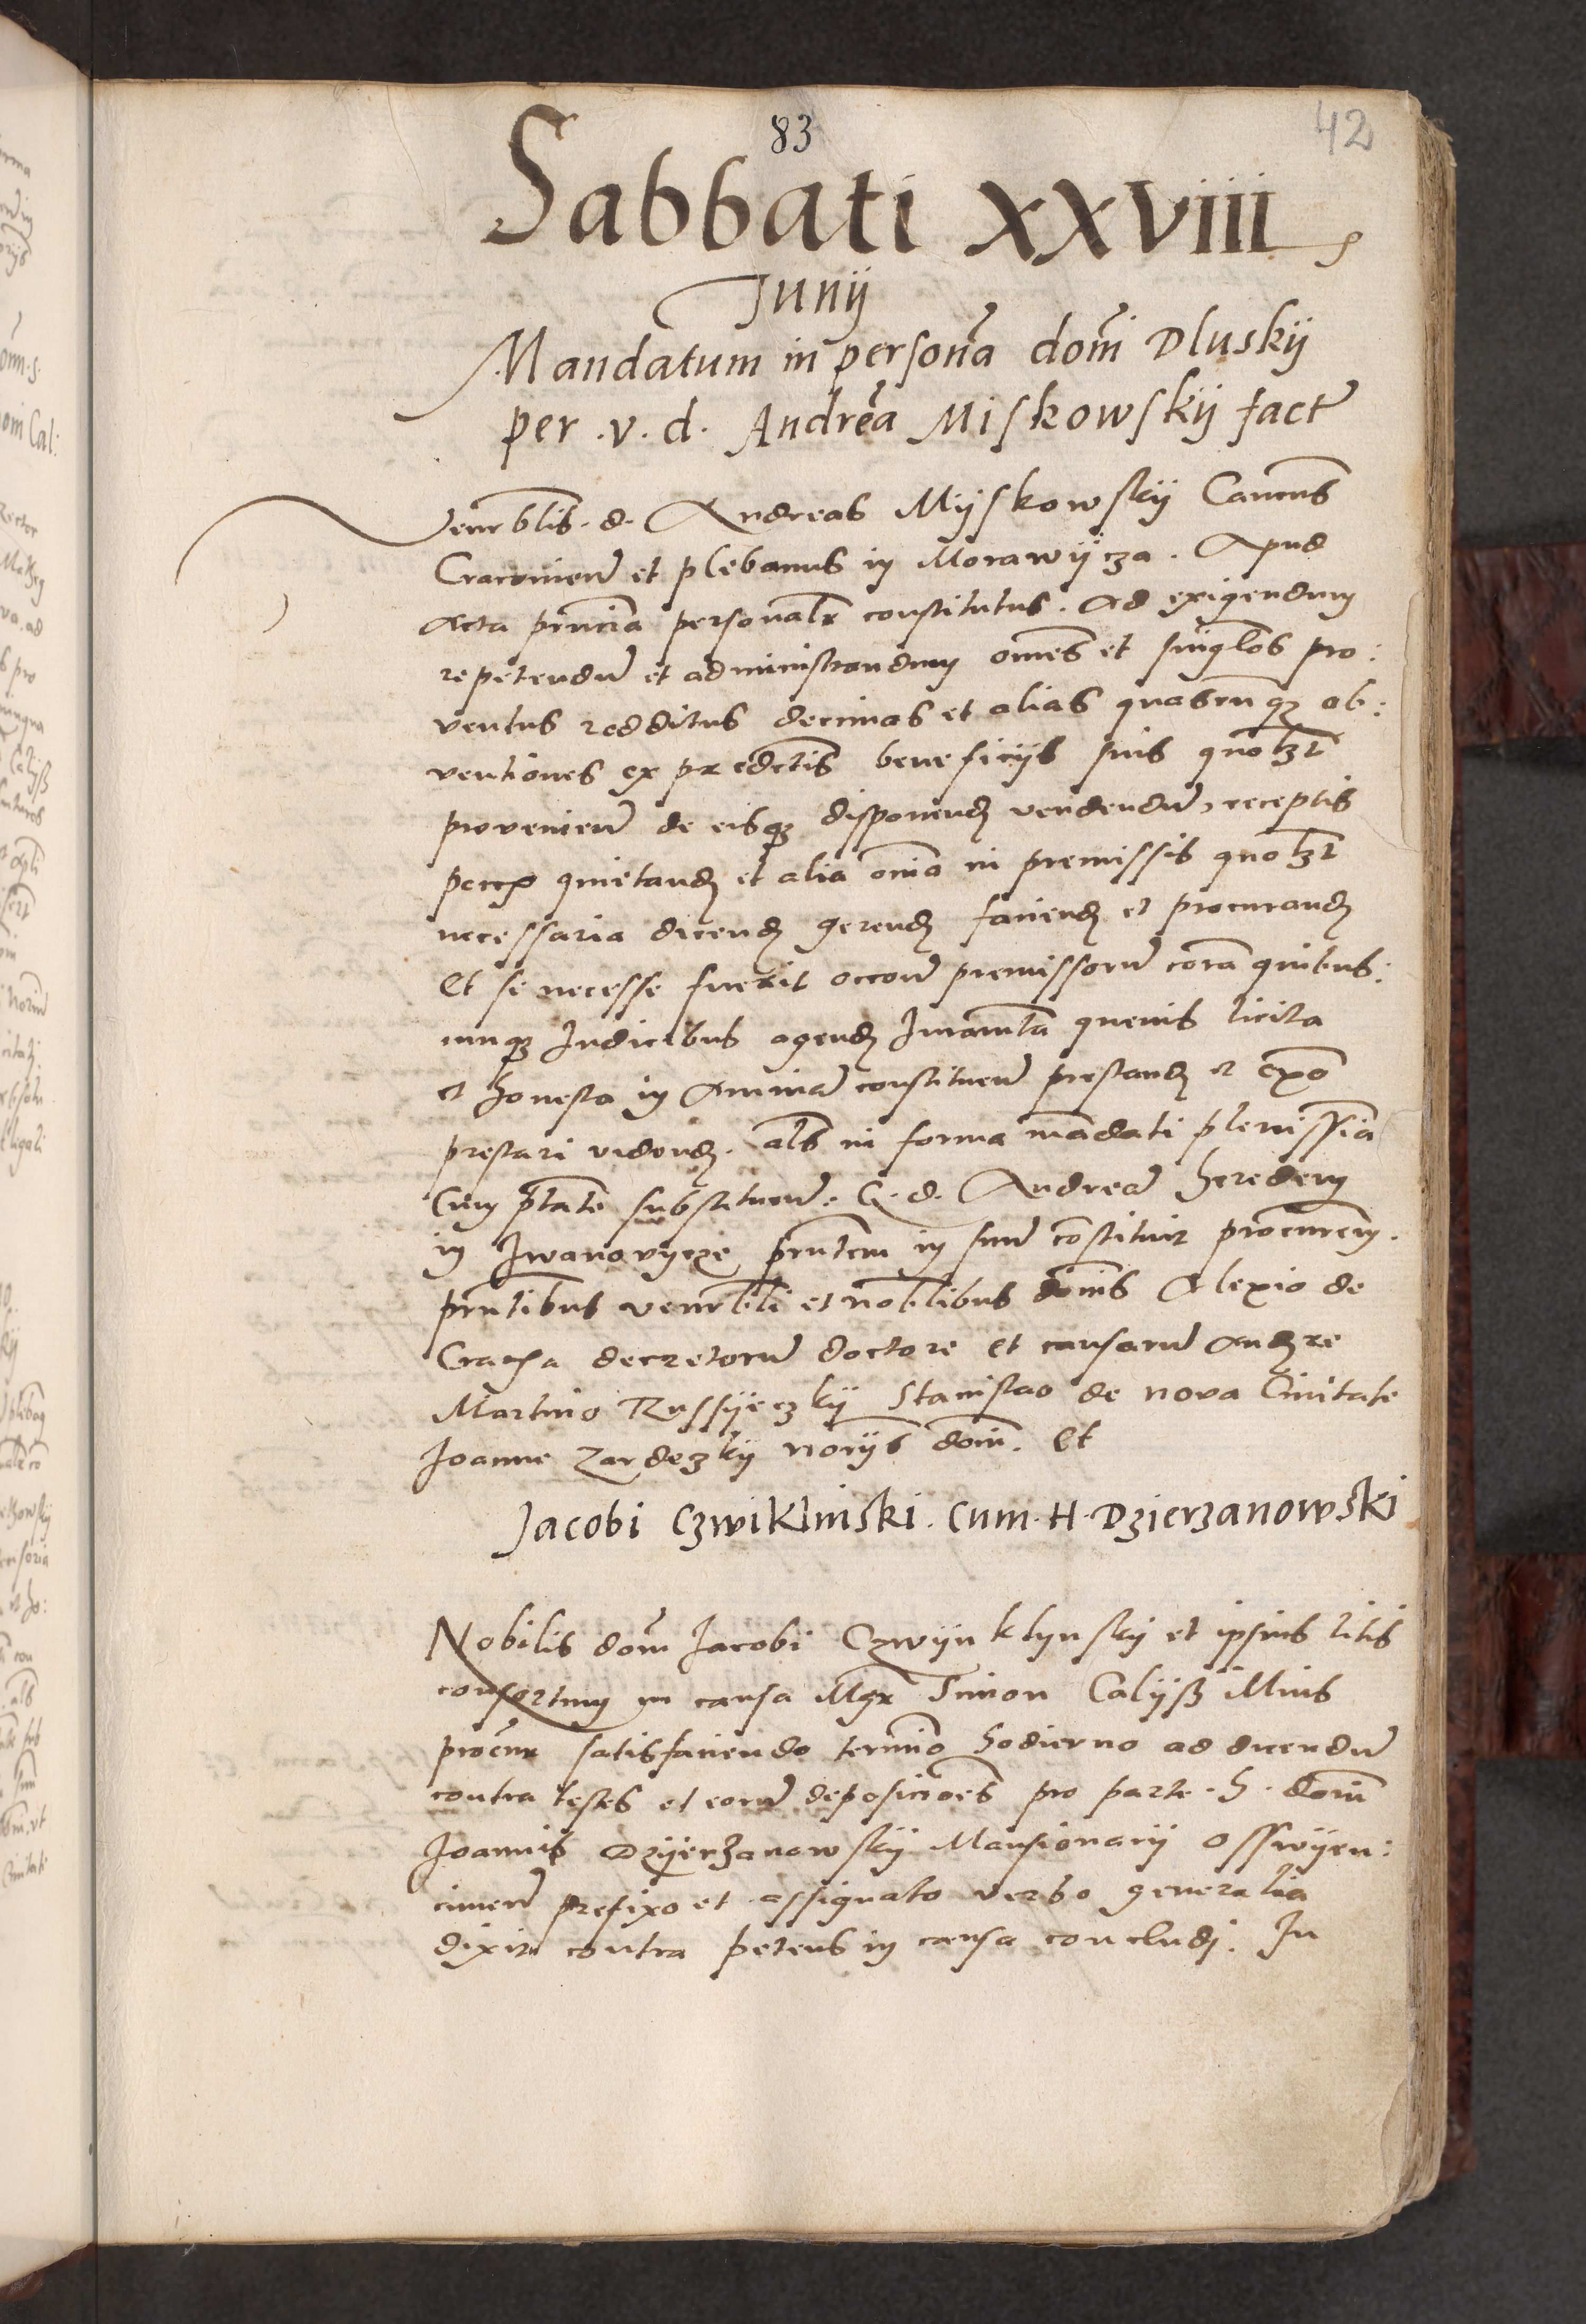 83
42
Sabbati xxviii
Junij
Mandatum in persona dom Dluskij
per .v. d. Andrea Miskowskij fact
Venrblis. d. Andreas Mijskowskij Cancus
Cracovien et plebanus in Morawijcza. Apud
Acta pruncia personalr constitutus. Ad exigendum
repetendu et administrandum omes et singlos pro:
ventus redditus decimas et alias quascunqz ob:
ventiones ex predctis beneficijs suis quolzt
provenien de eisqz disponend vendendu, receptis
quietand et alia omia in premissis quolzt
necessaria dicend gerend faciend et procurand
Et si necesse fuerit occone premissoru cora quibus:
cunqz Judicibus agend Juramta quevis licita
et honesta in Anima constituen prestand et
prestari vidend. als in forma mandati plenissia
Cum ptate substituen. G. d. Andrea heredem
in Iwanovycze prntem in suu constituit procurem.
prntibus venrbli et noblibus domis Alexio de
decretoru doctore et causaru Audre
Martino Russijeczkij Stanislao de nova Civitate
Joanne Zardezkij norijs dom. Et
Jacobi Czwiklinski. Cum. H. Dzierzanowski
Nobilis dom Jacobi Czwijnklynskij et ipsius litis
consortum in causa Mgr Simon Calijß Mius
procur satisfaciendo termino hodierno ad dicendu
contra testes et eoru deposicioes pro parte. H. dom
Joannis Dzijerzanowskij Mansionarij Osswijen:
cimen prefixo et assignato verbo generalia
dixit contra petens in causa concludj. In